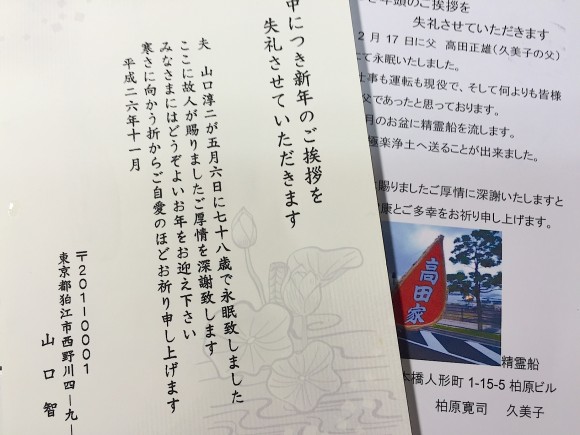 中につき新年のご挨拶を
失礼させていただきます
夫 山口淳二が五月六日に七十八歳で永眠致しました
ここに故人が賜りましたご厚情を深謝致します
みなさまにはどうぞよいお年をお迎え下さい
寒さに向かう折からご自愛のほどお祈り申し上げます
平成二六年十一月
〒201-0001
東京都狛江市西野川四-九-
山口 智
年頭のご挨拶を
失礼させていただきます
2月17日に父 高田正雄(久美子の父)
て永眠いたしました。
仕事も運転も現役で、そして何よりも皆様
父であったと思っております。
月のお盆に精霊船を流します。
極楽浄土へ送ることが出来ました。
賜りましたご厚情に深謝いたしますと
康とご多幸をお祈り申し上げます。
高田家
精霊船
本橋人形町 1-15-5 柏原ビル
柏原寛司 久美子